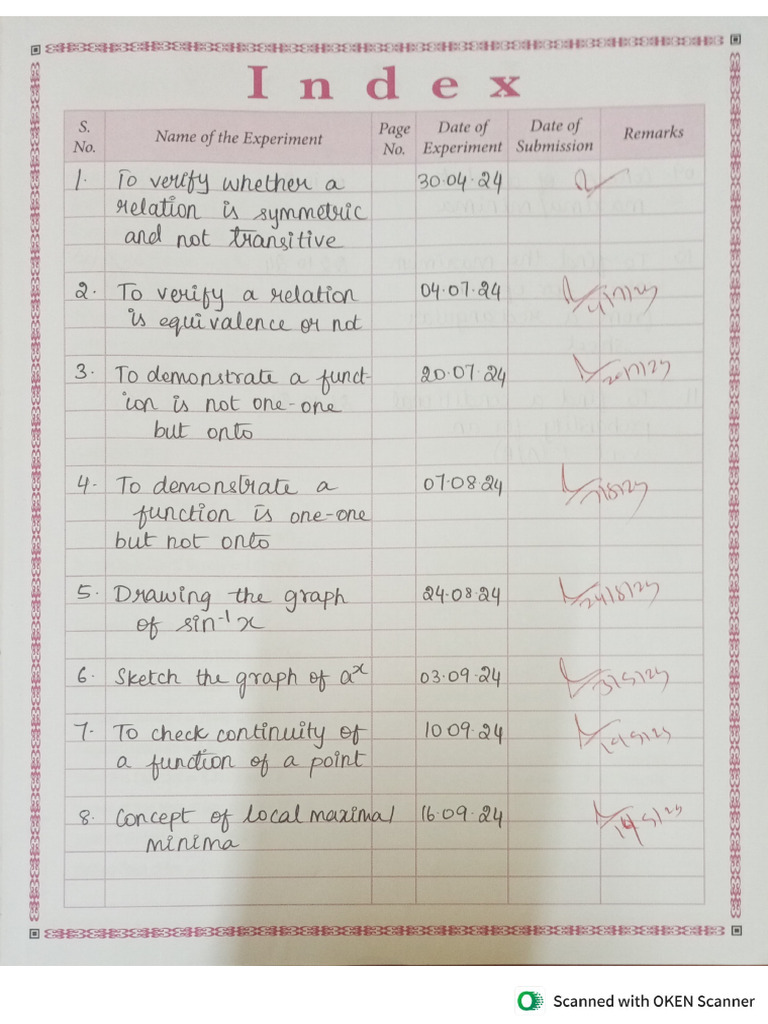 Index
S. No. Name of the Experiment Page No. Date of Experiment Date of Submission Remarks
1. To verify whether a 30.04.24
relation is symmetric
and not transitive
2. To verify a relation 04.07.24
is equivalence or not
3. To demonstrate a funct- 20.07.24
ion is not one-one
but onto
4. To demonstrate a 07.08.24
function is one-one
but not onto
5. Drawing the graph 24.08.24
of sin⁻¹x
6. Sketch the graph of aˣ 03.09.24
7. To check continuity of 10 09.24
a function of a point
8. Concept of local maxima/ 16.09.24
minima
Scanned with OKEN Scanner